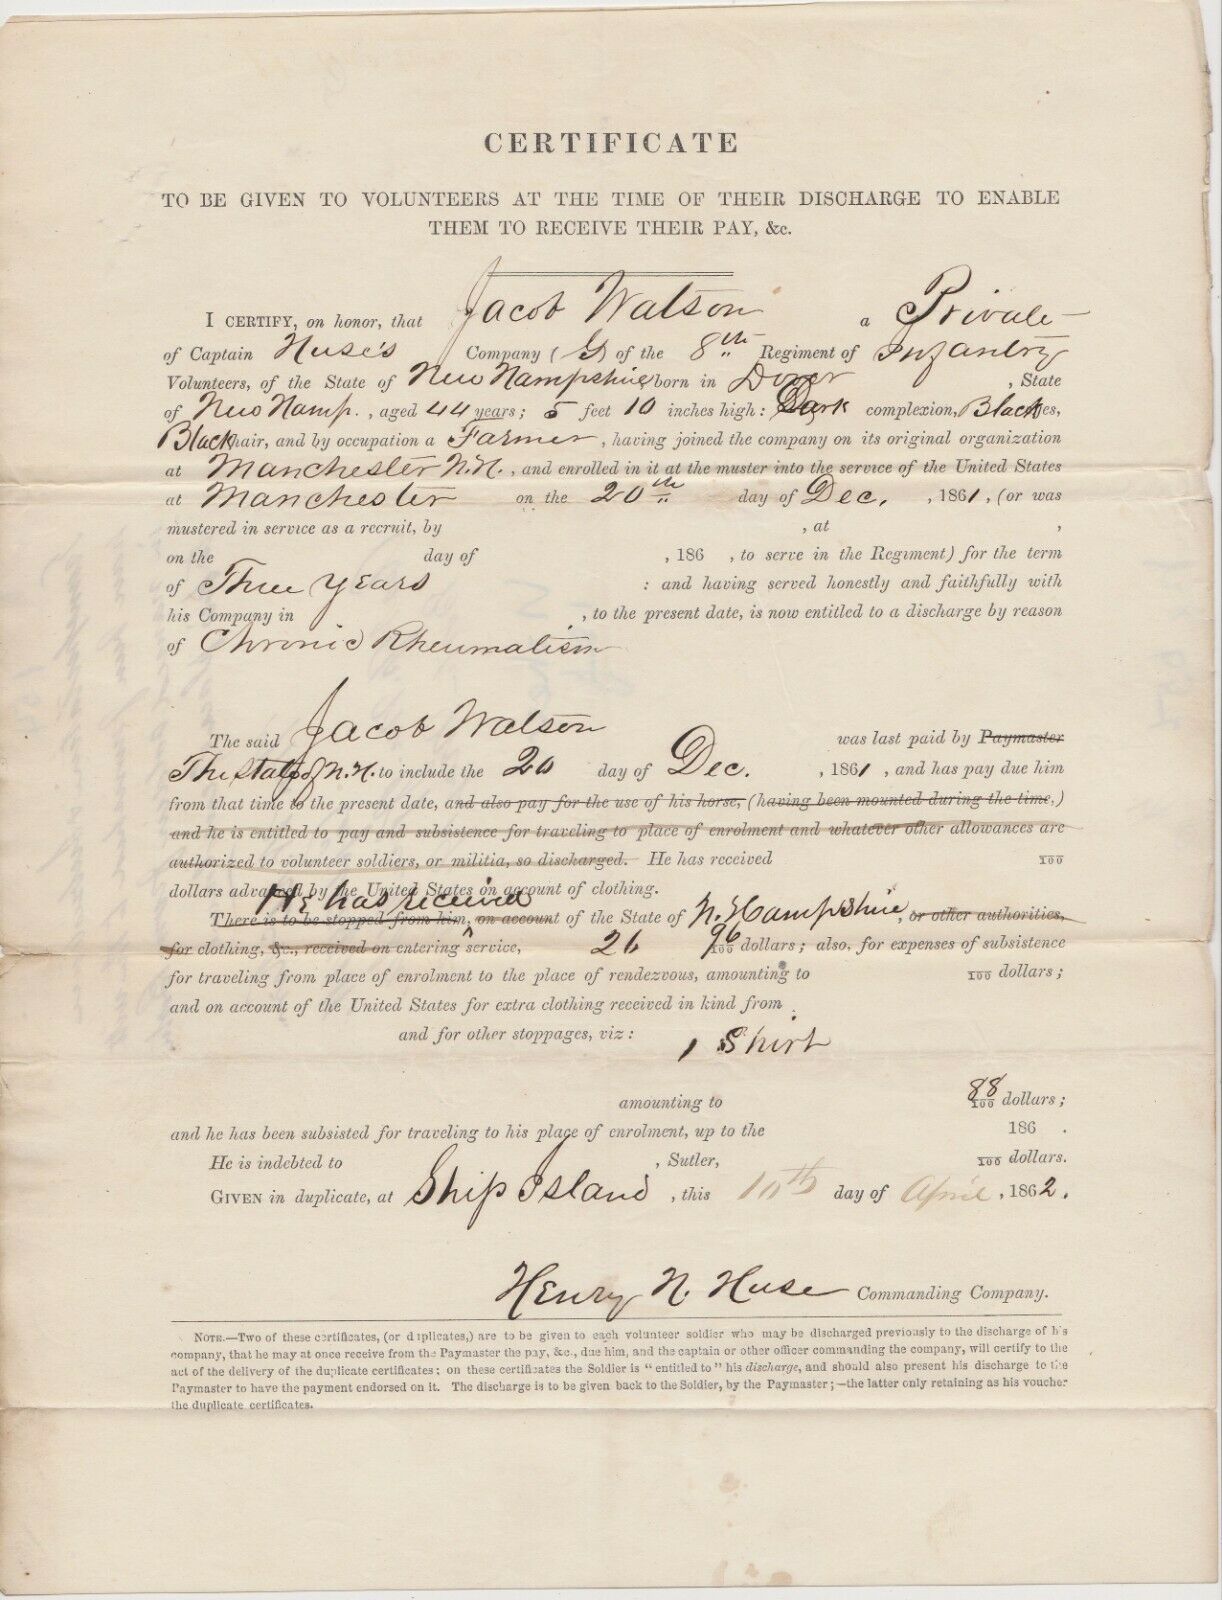 CERTIFICATE
TO BE GIVEN TO VOLUNTEERS AT THE TIME OF THEIR DISCHARGE TO ENABLE
THEM TO RECEIVE THEIR PAY, &c.
I CERTIFY, on honor, that Jacob Watson a Private
of Captain Huse's Company (G) of the 8th Regiment of Infantry
Volunteers, of the State of New Hampshire born in Dover, State
of New Hamp., aged 44 years; 5 feet 10 inches high: Dark complexion, Black es,
Black hair, and by occupation a Farmer, having joined the company on its original organization
at Manchester N.H., and enrolled in it at the muster into the service of the United States
at Manchester on the 20th day of Dec., 1861, (or was
mustered in service as a recruit, by , at ,
on the day of , 186 , to serve in the Regiment) for the term
of Three Years : and having served honestly and faithfully with
his Company in , to the present date, is now entitled to a discharge by reason
of Chronic Rheumatism
The said Jacob Watson was last paid by Paymaster
The State of N.H. to include the 20 day of Dec. , 1861, and has pay due him
from that time to the present date, and also pay for the use of his horse, (having been mounted during the time,)
and he is entitled to pay and subsistence for traveling to place of enrolment and whatever other allowances are
authorized to volunteer soldiers, or militia, so discharged. He has received 100
dollars advanced by the United States on account of clothing.
He has received
There is to be stopped from him, on account of the State of N. Hampshire, or other authorities,
for clothing, &c., received on entering ^ service, 26 96/100 dollars; also, for expenses of subsistence
for traveling from place of enrolment to the place of rendezvous, amounting to 100 dollars;
and on account of the United States for extra clothing received in kind from
and for other stoppages, viz: 1 Shirt
amounting to 88/100 dollars;
and he has been subsisted for traveling to his place of enrolment, up to the 186 .
He is indebted to , Sutler, 100 dollars.
GIVEN in duplicate, at Ship Island, this 10th day of April, 1862.
Henry N. Huse Commanding Company.
NOTE.—Two of these certificates, (or duplicates,) are to be given to each volunteer soldier who may be discharged previously to the discharge of his
company, that he may at once receive from the Paymaster the pay, &c., due him, and the captain or other officer commanding the company, will certify to the
act of the delivery of the duplicate certificates; on these certificates the Soldier is "entitled to" his discharge, and should also present his discharge to the
Paymaster to have the payment endorsed on it. The discharge is to be given back to the Soldier, by the Paymaster;—the latter only retaining as his voucher
the duplicate certificates.